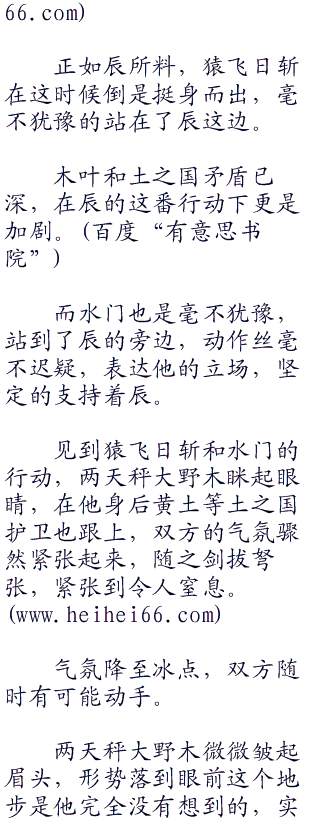 66.com)
正如辰所料，猿飞日斩
在这时候倒是挺身而出，毫
不犹豫的站在了辰这边。
木叶和土之国矛盾已
深，在辰的这番行动下更是
加剧。(百度“有意思书
院”)
而水门也是毫不犹豫，
站到了辰的旁边，动作丝毫
不迟疑，表达他的立场，坚
定的支持着辰。
见到猿飞日斩和水门的
行动，两天秤大野木眯起眼
睛，在他身后黄土等土之国
护卫也跟上，双方的气氛骤
然紧张起来，随之剑拔弩
张，紧张到令人窒息。
(www.heihei66.com)
气氛降至冰点，双方随
时有可能动手。
两天秤大野木微微皱起
眉头，形势落到眼前这个地
步是他完全没有想到的，实